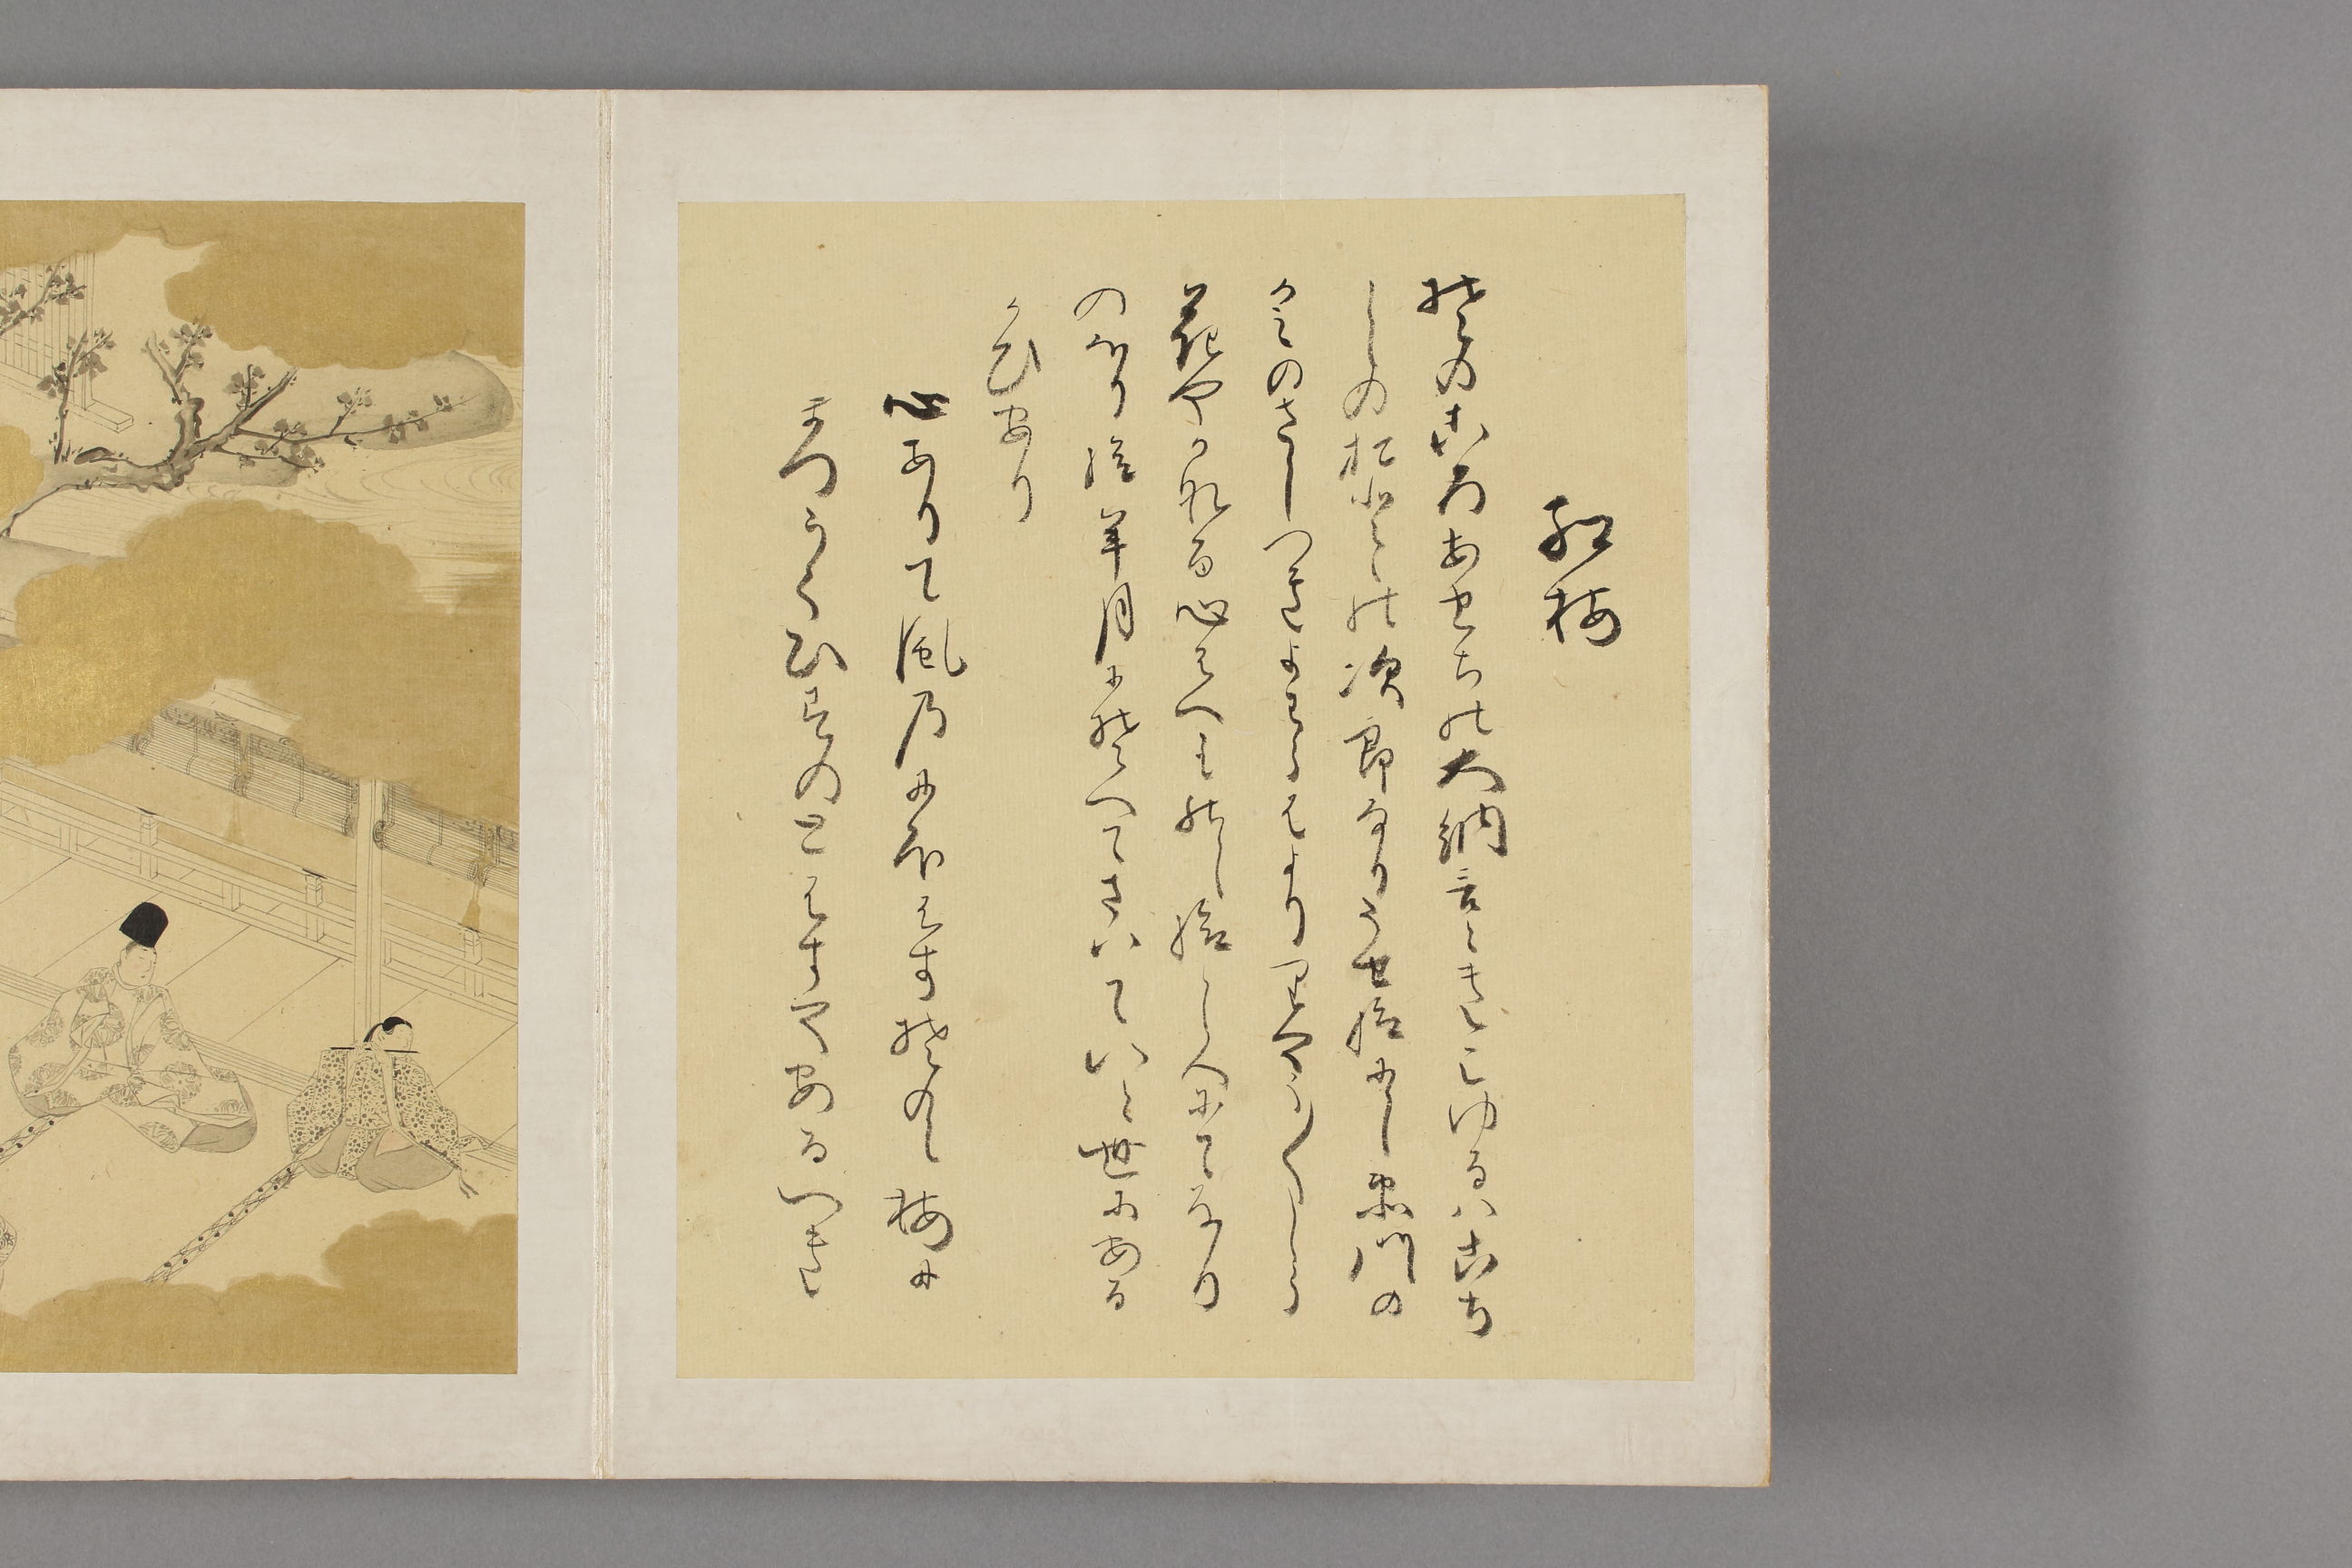 紅梅
そのころあせちの大納言ときこゆるハこち
しのおとゝの次郎なりうせ給にし衛門の
かみのさしつきよわらはよりらう〳〵しく
花やかなる心はへものし給し人にてなり
のほり給年月にそへてまいていと世にある
かひあり
心ありて風のにほはすそのゝ梅に
まつうくひすのとはすやあるへき